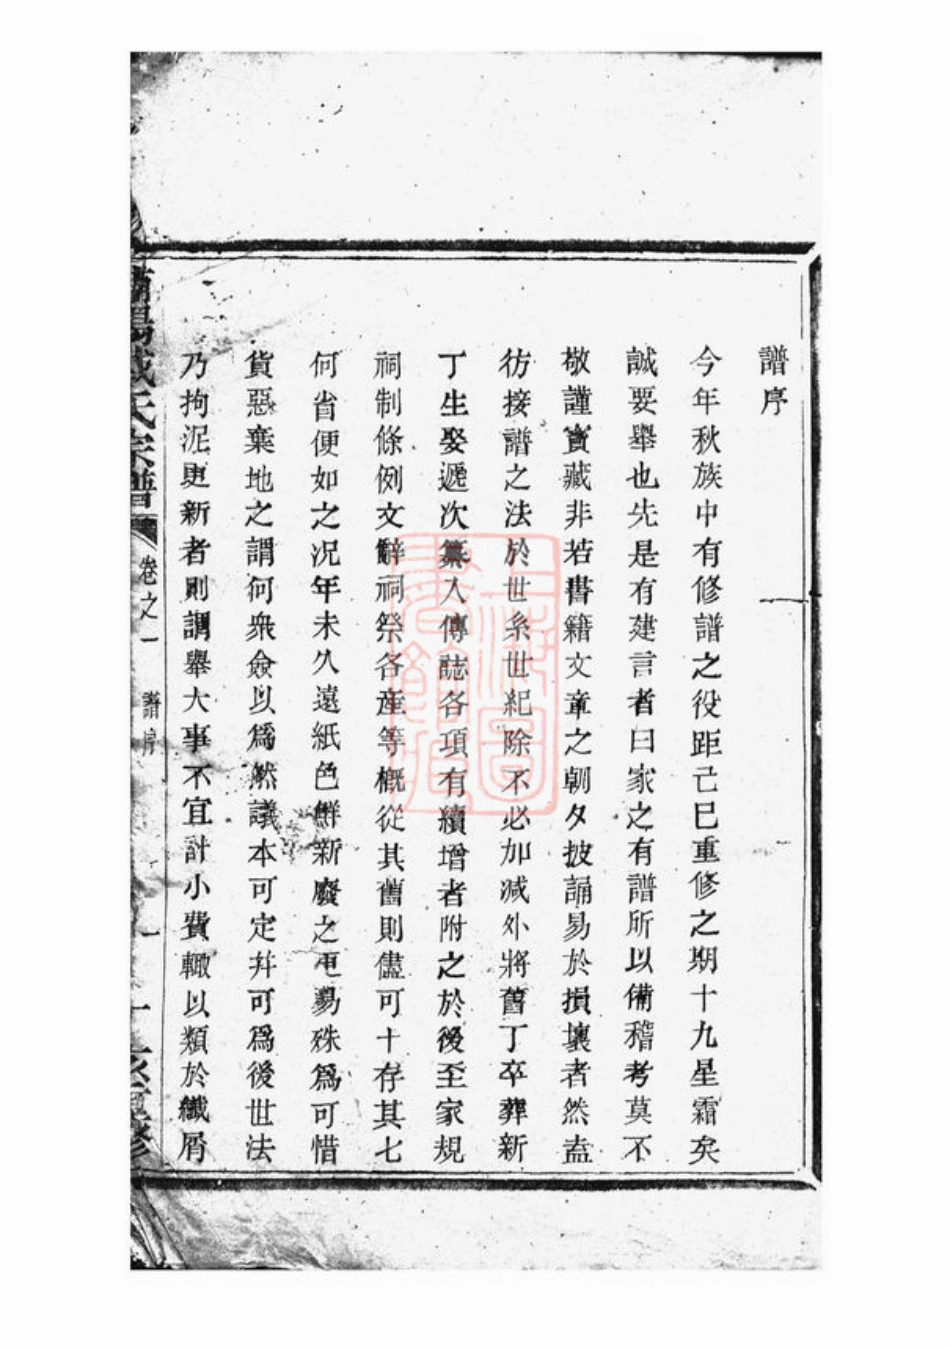 譜序
今年秋族中有修譜之役距己巳重修之期十九星霜矣
誠要舉也先是有建言者曰家之有譜所以備稽考莫不
敬謹寳藏非若書籍文章之朝夕披誦易於損壞者然盍
彷接譜之法於世系世紀除不必加減外將舊丁卒葬新
丁生娶遞次纂入傳誌各項有續增者附之於後至家規
祠制條例文辭祠祭各產等概從其舊則儘可十存其七
何省便如之况年未久遠紙色鮮新廢之屯易殊爲可惜
貨惡棄地之謂何衆僉以爲然議本可定幷可爲後世法
乃拘泥更新者則謂舉大事不宜計小費輙以類於纖屑
氏宗譜
卷之一
譜序
一
修
上海圖書館藏